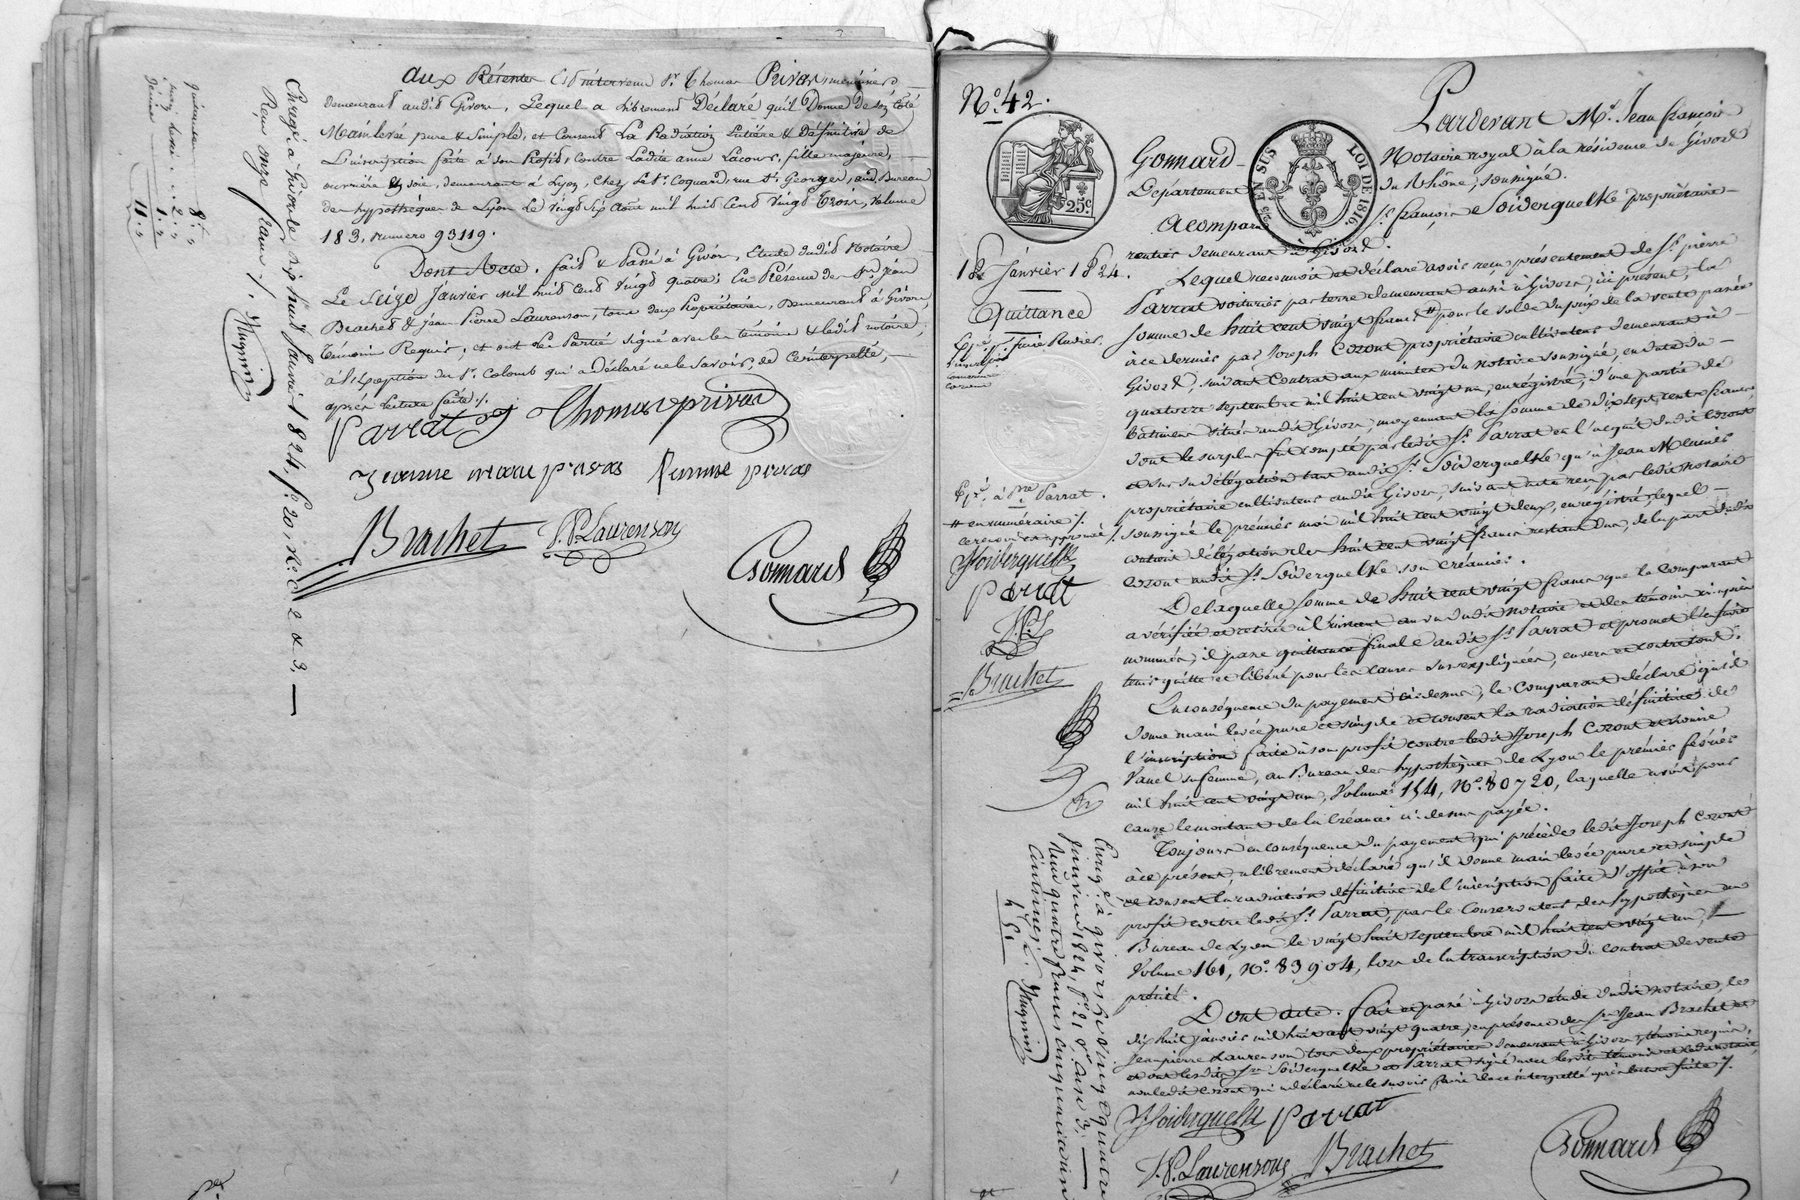 aux Présentes Est intervenu Sr. Thomas Privas, menuisier,
demeurant audit Givors, Lequel a Librement Déclaré qu'il Donne De son Côté
Mainlevée pure & Simple, et Consent La Radiation Entière & définitive de
L'inscription faite à son Profit, Contre Ladite anne Lacour, fille majeure,
ouvrière en soie, demeurant à Lyon, Chez Le Sr. Coquard, rue St. Georges, aud. Bureau
des hypothèques de Lyon le vingt six Août mil huit Cent Vingt Trois, Volume
183, numero 93119.
Dont Acte, fait & Passé à Givors, Etude dudit Notaire
Le Seize Janvier mil huit Cent vingt quatre; En Présence de Srs. Jean
Brachet & Jean Pierre Laurenson, tous deux Propriétaires, Demeurant à Givors,
témoins Requis, et ont Les Parties signé avec les témoins & ledit notaire,
à l'Exception du Sr. Colomb qui a déclaré ne le savoir, de Ce interpellé,
après Lecture faite ./.
Parrat
Thomas privas
Jeanne privas femme privas
Brachet
J.P. Laurenson
Gonnard
Enrégé. à Givors le dix huit Janvier 1824, fo. 20, Ro. C. 2 & 3.
Reçu onze francs
8..
2..
1..
11..
No. 42.
25c.
EN SUS
LOI DE 1816.
Pardevant Me. Jean françois
Gonnard Notaire royal à la résidence de Givors
Département du Rhône, soussigné.
A comparu Sr. françois Soiderquelke propriétaire
rentier demeurant à Givors.
18 Janvier 1824.
Quittance
Lequel reconnoit et déclare avoir reçu présentement de Sr. pierre
Parrat voiturier par terre demeurant aussi à Givors, ici présent, la
somme de huit cent vingt francs # pour le solde du prix de la vente passée
à ce dernier par Joseph Coront propriétaire cultivateur demeurant à
Givors, suivant contrat aux minutes du notaire soussigné, en date du
quatorze septembre mil huit cent vingt un, enregistré, d'une partie de
bâtimens située audit Givors, moyennant la somme de dix sept cents francs
dont le surplus fut compté par ledit Sr. Parrat en l'acquit dudit Coront
et sur sa délégation tant audit Sr. Soiderquelke qu'à Jean
propriétaire cultivateur audit Givors, suivant acte reçu par ledit notaire
soussigné le premier mai mil huit cent vingt deux, enregistré, lequel
contient délégation des huit cent vingt francs restant dus, de la part dudit
Coront audit Sr. Soiderquelke son créancier.
Expé. à Me. Parrat.
# en numéraire ./.
ce renvoi est approuvé ./.
Soiderquelke
Parrat
J.P.L.
Brachet
De laquelle somme de huit cent vingt francs que le comparant
a vérifiée et retirée à l'instant au vu dudit notaire et des témoins ci-après
nommés, il passe quittance finale audit Sr. Parrat et promet l'en faire
tenir quitte et libéré pour les causes sus expliquées, envers et contre tous.
En conséquence du payement ci-dessus, le comparant déclare qu'il
donne main levée pure et simple et consent la radiation définitive de
l'inscription faite à son profit contre ledit Joseph Coront et
Vanel sa femme, au Bureau des hypothèques de Lyon le premier février
mil huit cent vingt un, Volume 154, No. 80720, laquelle avoit pour
cause le montant de la Créance ci-dessus payée.
Toujours en conséquence du payement qui précède ledit Joseph Coront
à ce présent, a librement déclaré qu'il donne main levée pure et simple
et consent la radiation définitive de l'inscription faite d'office à son
profit contre ledit Sr. Parrat, par le Conservateur des hypothèques au
Bureau de Lyon le vingt huit septembre mil huit cent vingt un,
Volume 161, No. 83904, lors de la transcription du contrat de vente
précité.
Dont acte. fait et passé à Givors étude dudit notaire, le
dix huit janvier mil huit cent vingt quatre, en présence des Srs. Jean Brachet et
Jean pierre Laurenson tous deux propriétaires demeurant à Givors, témoins requis,
et ont lesdits Srs. Soiderquelke et Parrat signé avec lesdits témoins et ledit notaire,
non ledit Coront qui a déclaré ne le savoir faire de ce interpellé après lecture faite ./.
Soiderquelke
Parrat
J.P. Laurenson
Brachet
Gonnard
Enrégé. à givors le vingt quatre
Janvier 1824, fo. 21 Vo. Case 3.
Reçu quatre francs cinquante cinq
Centimes
4 51